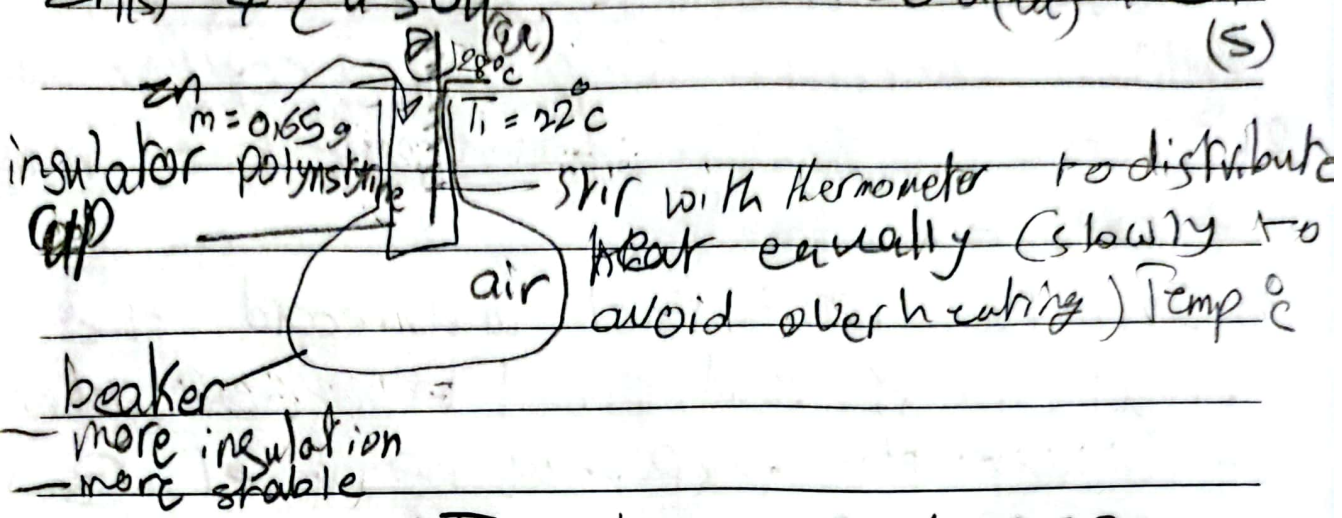 (s)
28°c
Zn
m = 0,65g
T₁ = 22°c
insulator polynstyrine
cup
stir with thermometer to distribute
heat equally (slowly to
avoid overheating) Temp °c
air
beaker
- more insulation
- more stable